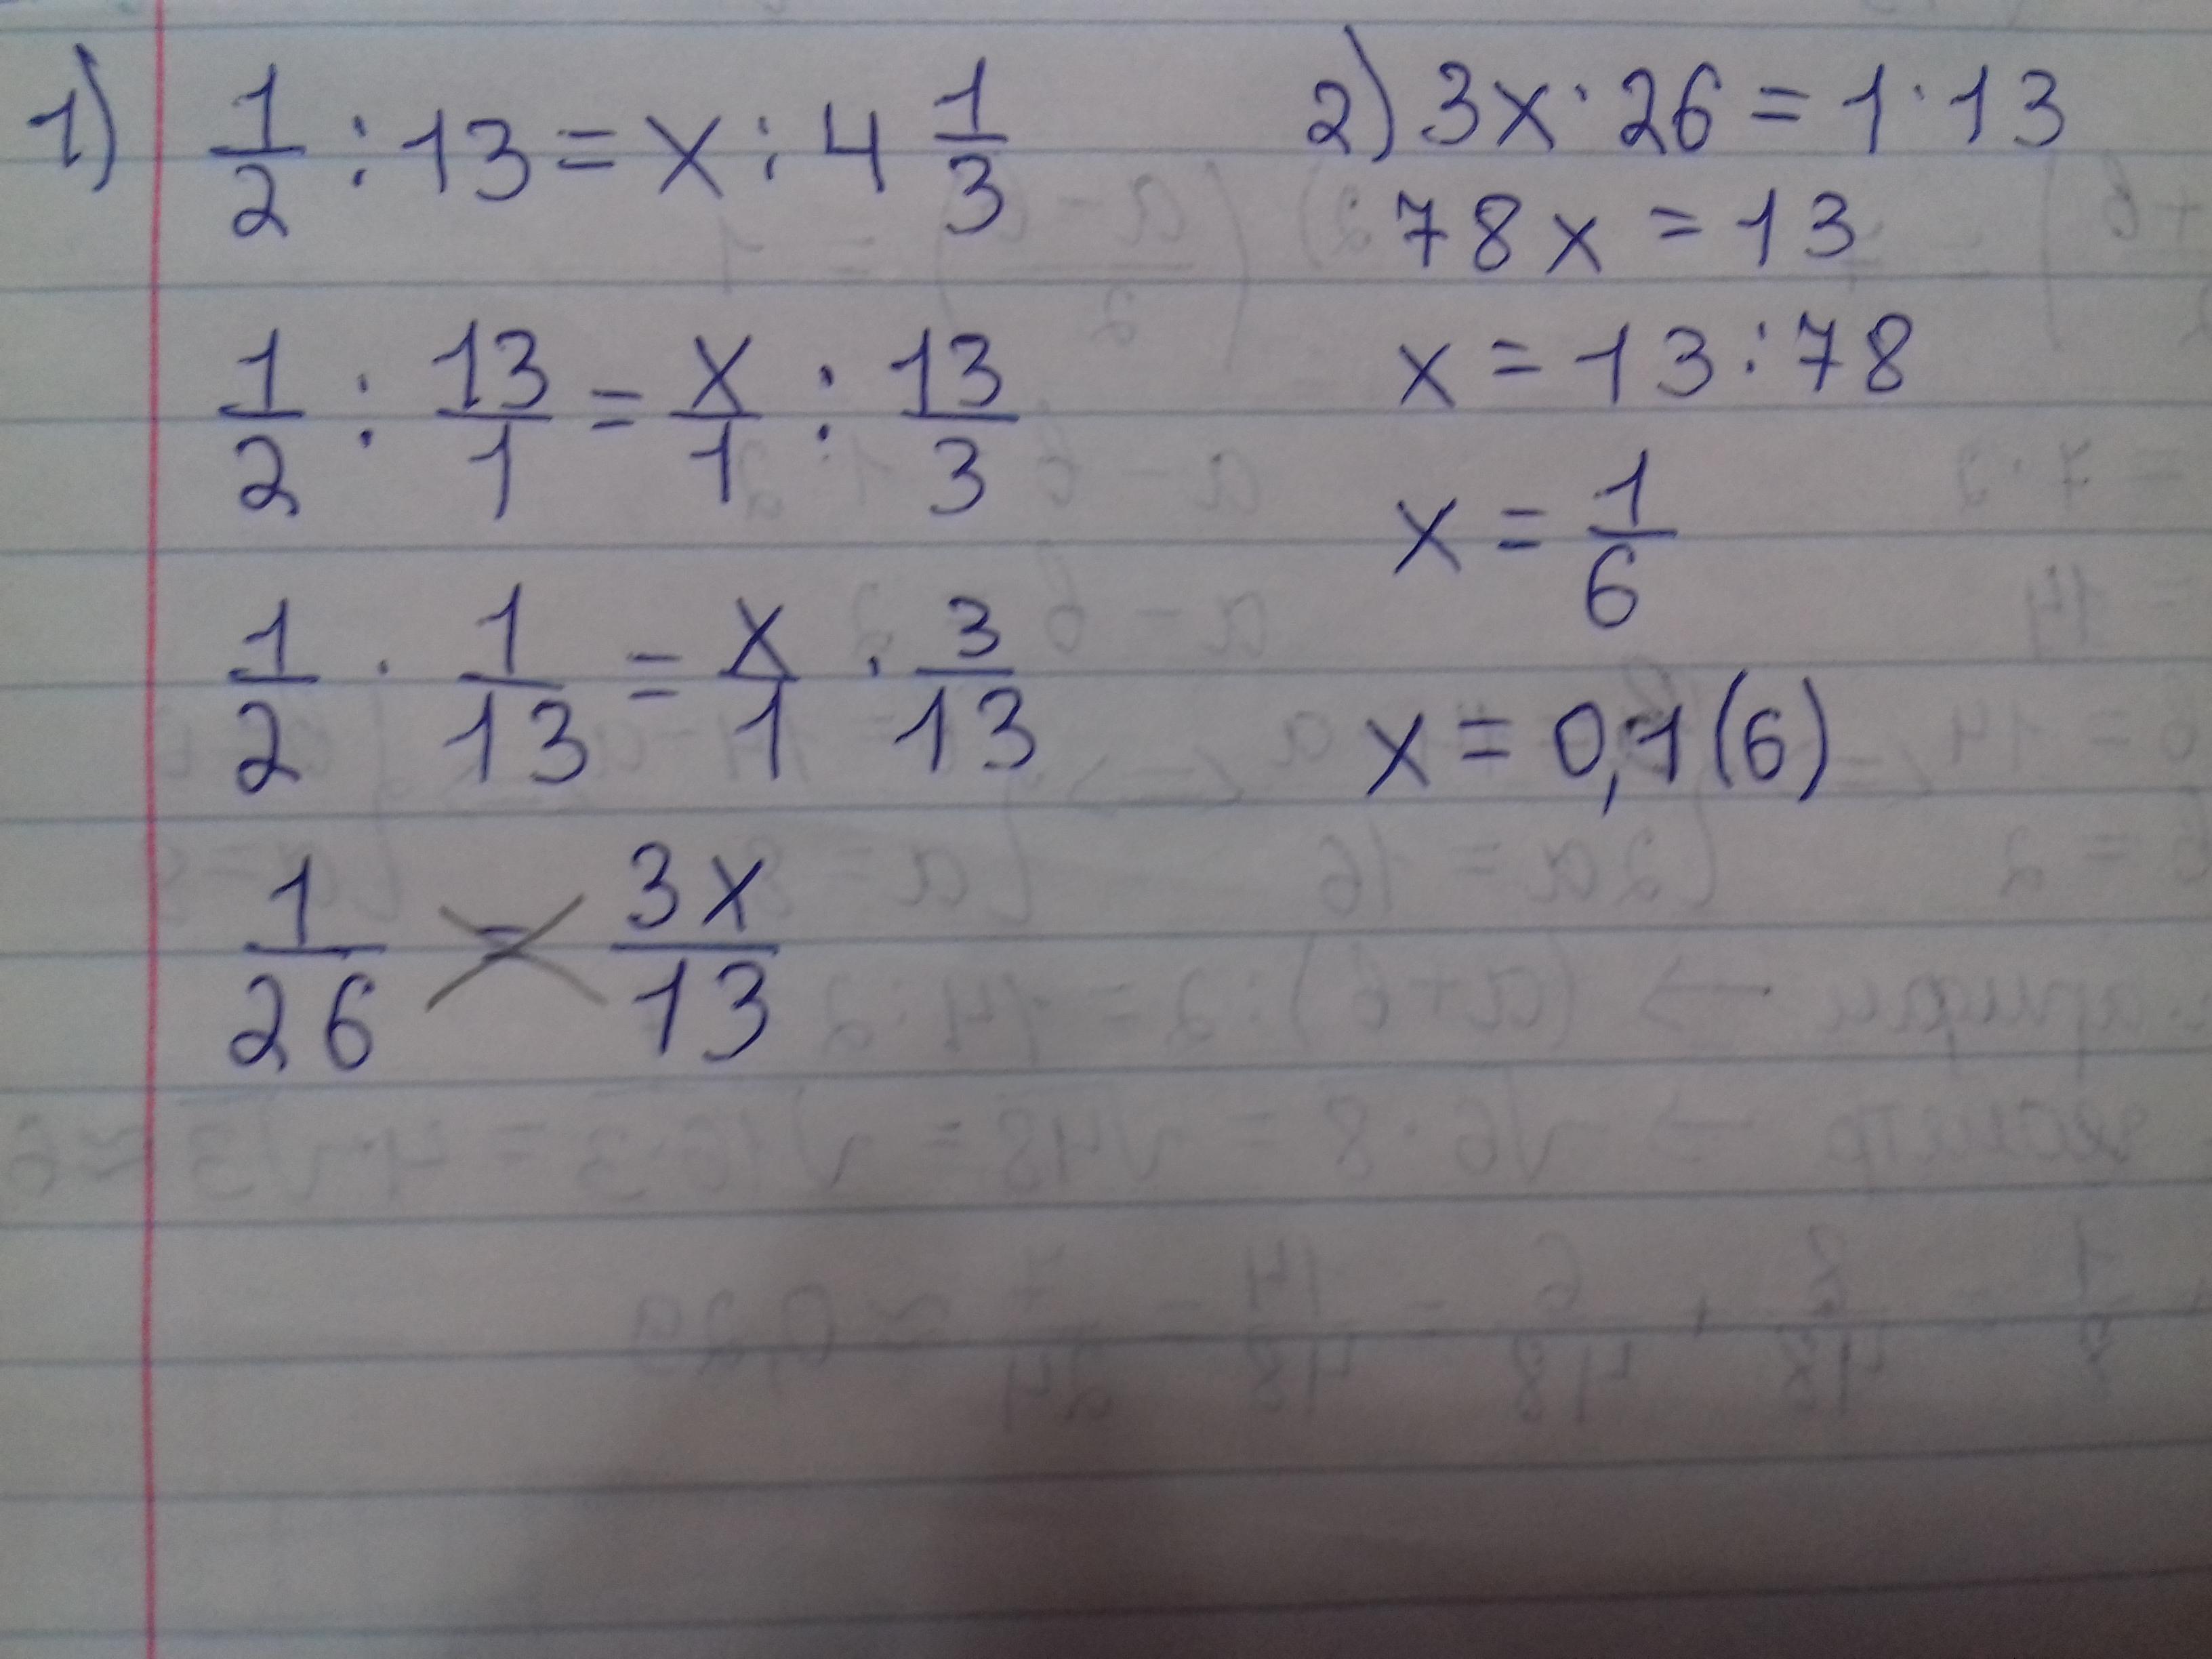 1) 1/2 : 13 = x : 4 1/3
1/2 : 13/1 = x/1 : 13/3
1/2 · 1/13 = x/1 · 3/13
1/26 = 3x/13
2) 3x · 26 = 1 · 13
78x = 13
x = 13 : 78
x = 1/6
x = 0,1(6)